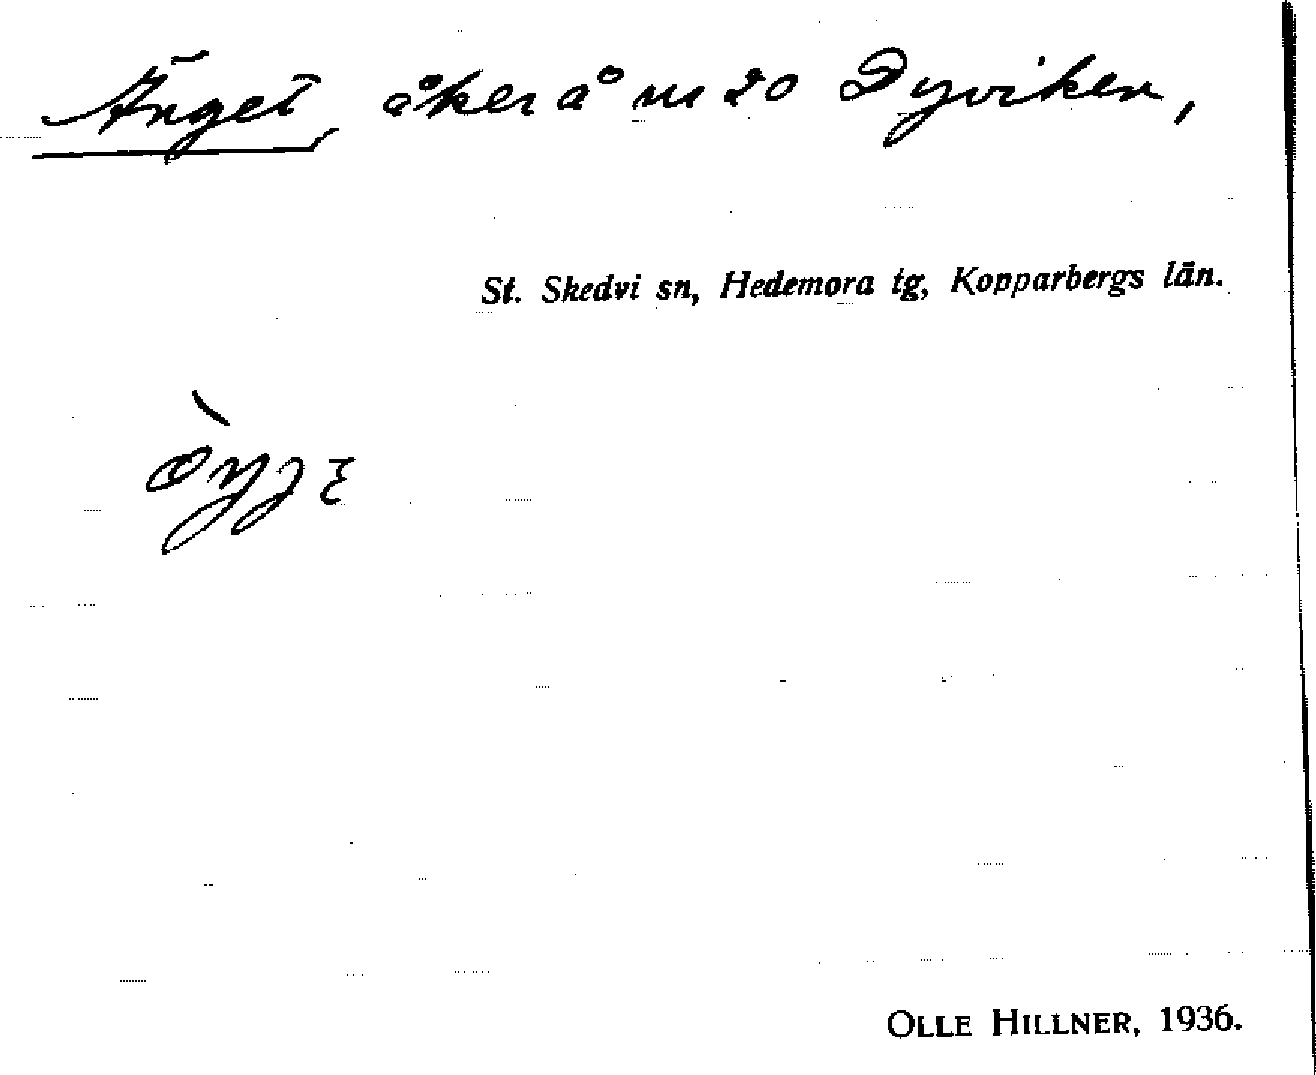 Änget, åker å nr 20 Dyviken,
St. Skedvi sn, Hedemora tg, Kopparbergs län.
OLLE HILLNER, 1936.